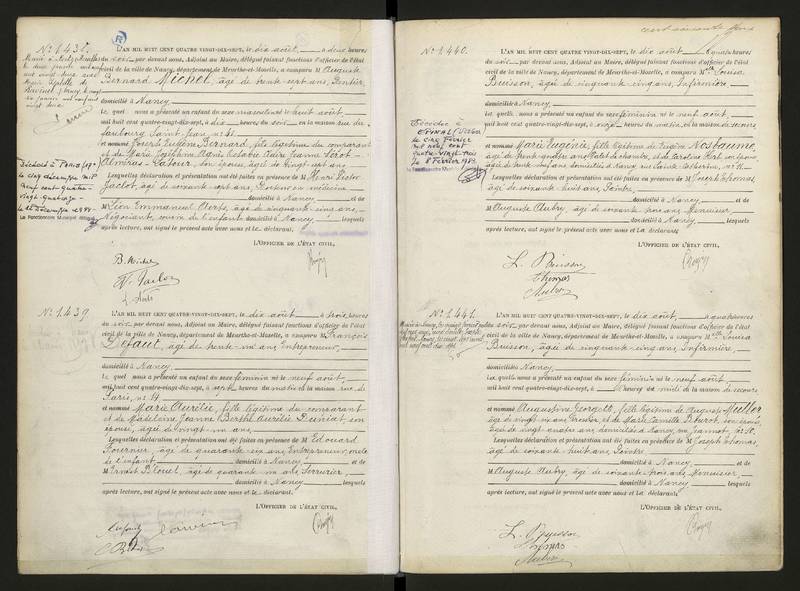 N° 1.438.
L'AN MIL HUIT CENT QUATRE-VINGT-DIX-SEPT, le dix août, à deux heures
du soir par devant nous, Adjoint au Maire, délégué faisant fonctions d'officier de l'état
civil de la ville de Nancy, département de Meurthe-et-Moselle, a comparu M Auguste
Bernard Michel, âgé de trente-sept ans, Rentier,
domicilié à Nancy
Le quel nous a présenté un enfant du sexe masculin né le huit août,
mil huit cent quatre-vingt-dix-sept, à dix heures du soir en la maison rue du
faubourg Saint-Jean, n° 41
et nommé Joseph Eugène Bernard, fils légitime du comparant
et de Marie Joséphine
Latour, son épouse, âgée de vingt-sept ans
Lesquelles déclaration et présentation ont été faites en présence de M Henri Victor
Jaclot, âgé de soixante-sept ans, Docteur en médecine
domicilié à Nancy et de
M Léon Emmanuel Aerts, âgé de cinquante-cinq ans,
Négociant, cousin de l'enfant domicilié à Nancy lesquels
après lecture, ont signé le présent acte avec nous et Le déclarant.
L'OFFICIER DE L'ÉTAT CIVIL,
B. Michel
Décédé à
le cinq décembre mil
neuf cent quatre-
vingt-quatorze
N° 1.439
L'AN MIL HUIT CENT QUATRE-VINGT-DIX-SEPT, le dix août, à trois heures
du soir par devant nous, Adjoint au Maire, délégué faisant fonctions d'officier de l'état
civil de la ville de Nancy, département de Meurthe-et-Moselle, a comparu M François
Defaut, âgé de trente-un ans, Entrepreneur,
domicilié à Nancy
Le quel nous a présenté un enfant du sexe féminin né le neuf août,
mil huit cent quatre-vingt-dix-sept, à sept heures du matin en la maison rue de
Paris, n° 14
et nommé Marie Aurélie, fille légitime du comparant
et de Madeleine Jeanne Berthe Aurélie son
épouse, âgée de vingt-un ans
Lesquelles déclaration et présentation ont été faites en présence de M Edouard
Fournier, âgé de quarante-six ans, Entrepreneur, oncle
de l'enfant domicilié à Nancy et de
M Ernest Blouet, âgé de quarante-un ans, Serrurier,
domicilié à Nancy lesquels
après lecture, ont signé le présent acte avec nous et Le déclarant.
L'OFFICIER DE L'ÉTAT CIVIL,
N° 1.440.
L'AN MIL HUIT CENT QUATRE-VINGT-DIX-SEPT, le dix août, à quatre heures
du soir par devant nous, Adjoint au Maire, délégué faisant fonctions d'officier de l'état
civil de la ville de Nancy, département de Meurthe-et-Moselle, a comparu M Louisa
Buisson, âgée de cinquante-cinq ans, Infirmière,
domiciliée à Nancy
La quelle nous a présenté un enfant du sexe féminin né le neuf août,
mil huit cent quatre-vingt-dix-sept, à onze heures du matin en la maison de secours
et nommé Marie Eugénie, fille légitime de Eugène Nosbaume,
âgé de trente-quatre ans, Valet de chambre, et de Caroline
Lesquelles déclaration et présentation ont été faites en présence de M Joseph Thomas,
âgé de soixante-huit ans, Peintre,
domicilié à Nancy et de
M Auguste Aubry, âgé de soixante-trois ans, Menuisier,
domicilié à Nancy lesquels
après lecture, ont signé le présent acte avec nous et La déclarante
L'OFFICIER DE L'ÉTAT CIVIL,
L. Buisson
Thomas
Aubry
Décédée à
EPINAL
le cinq Février
mil neuf cent
quatre-vingt-trois
le 8 Février 1983
N° 1.441.
L'AN MIL HUIT CENT QUATRE-VINGT-DIX-SEPT, le dix août, à quatre heures
du soir par devant nous, Adjoint au Maire, délégué faisant fonctions d'officier de l'état
civil de la ville de Nancy, département de Meurthe-et-Moselle, a comparu M Louisa
Buisson, âgée de cinquante-cinq ans, Infirmière,
domiciliée à Nancy
La quelle nous a présenté un enfant du sexe féminin né le neuf août,
mil huit cent quatre-vingt-dix-sept, à heures de midi en la maison de secours
et nommé Augustine Georgette, fille légitime de Auguste Muller
âgé de vingt-six ans, et de Marie Camille
âgée de vingt-quatre ans, domiciliés à Nancy, rue Jeannot,
Lesquelles déclaration et présentation ont été faites en présence de M Joseph Thomas,
âgé de soixante-huit ans, Peintre
domicilié à Nancy et de
M Auguste Aubry, âgé de soixante-trois ans, Menuisier
domicilié à Nancy lesquels
après lecture, ont signé le présent acte avec nous et La déclarante
L'OFFICIER DE L'ÉTAT CIVIL,
L. Buisson
Thomas
Aubry